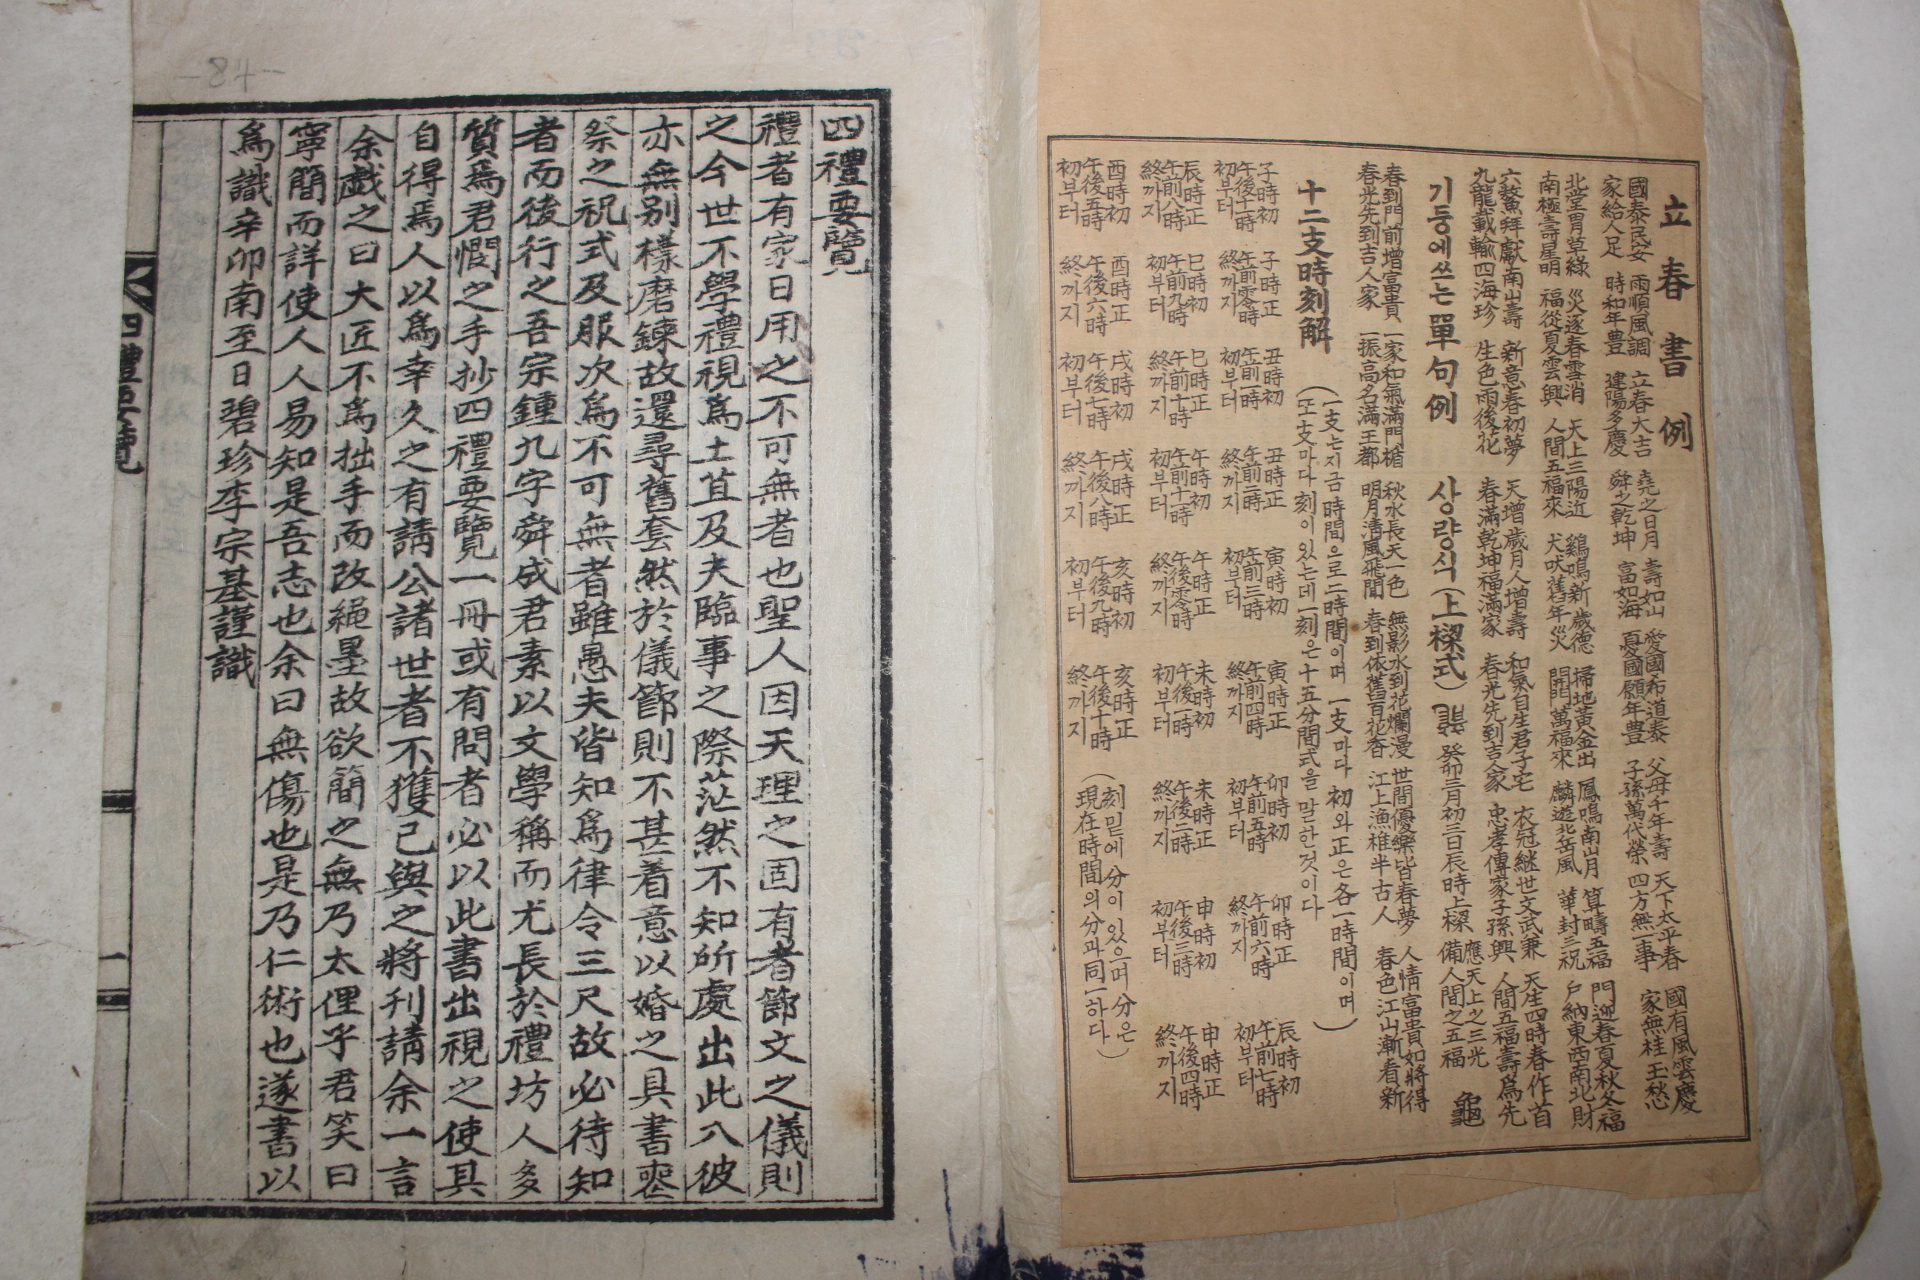 立春書例
國泰民安 家給人足
雨順風調 時和年豊
立春大吉 建陽多慶
堯之日月 舜之乾坤
壽如山 富如海
愛國希道泰 憂國願年豊
父母千年壽 子孫萬代榮
天下太平春 四方無一事
國有風雲慶 家無桂玉愁
北堂萱草綠 南極壽星明
災逐春雪消 福從夏雲興
天上三陽近 人間五福來
鷄鳴新歲德 犬吠舊年災
掃地黃金出 開門萬福來
鳳鳴南山月 麟遊北岳風
算疇五福 華封三祝
門迎春夏秋冬福 戶納東西南北財
六鰲拜獻南山壽 九龍載輸四海珍
新意春初夢 生色雨後花
天增歲月人增壽 春滿乾坤福滿家
和氣自生君子宅 春光先到吉人家
衣冠繼世文武兼 忠孝傳家子孫興
天生四時春作首 人間五福壽爲先
기둥에쓰는單句例
상량식(上樑式)
龍 癸卯三月初三日辰時上樑 應天上之三光 備人間之五福 龜
春到門前增富貴 春光先到吉人家
一家和氣滿門楣 一振高名滿王都
秋水長天一色 明月淸風飛閒
無影水到花爛漫 春到依舊百花香
世間優樂皆春夢 江上漁樵半古人
人情富貴如將得 春色江山漸看新
十二支時刻解
(一支는지금時間으로二時間이며 一支마다 初와正은各一時間이며)
(또支마다 刻이있는데一刻은十五分間式을말한것이다
子時初 午後十一時初부터
子時正 午前零時終까지
丑時初 午前一時初부터
丑時正 午前二時終까지
寅時初 午前三時初부터
寅時正 午前四時終까지
卯時初 午前五時初부터
卯時正 午前六時終까지
辰時初 午前七時初부터
辰時正 午前八時終까지
巳時初 午前九時初부터
巳時正 午前十時終까지
午時初 午前十一時初부터
午時正 午後零時終까지
未時初 午後一時初부터
未時正 午後二時終까지
申時初 午後三時初부터
申時正 午後四時終까지
酉時初 午後五時初부터
酉時正 午後六時終까지
戌時初 午後七時初부터
戌時正 午後八時終까지
亥時初 午後九時初부터
亥時正 午後十時終까지
(刻밑에分이있으며分은
現在時間의分과同一하다)
四禮要覽
禮者有家日用之不可無者也聖人因天理之固有者節文之儀則
之今世不學禮視爲土苴及夫臨事之際茫然不知所處出此入彼
亦無別樣磨鍊故還尋舊套然於儀節則不甚着意以婚之具書喪
祭之祝式及服次爲不可無者雖愚夫皆知爲律令三尺故必待知
者而後行之吾宗鍾九字舜成君素以文學稱而尤長於禮坊人多
質焉君憫之手抄四禮要覽一冊或有問者必以此書出視之使其
自得焉人以爲幸久之有請公諸世者不獲已與之將刊請余一言
余戱之曰大匠不爲拙手而改繩墨故欲簡之無乃太俚乎君笑曰
寧簡而詳使人人易知是吾志也余曰無傷也是乃仁術也遂書以
爲識辛卯南至日碧珍李宗基謹識
四禮要覽
一